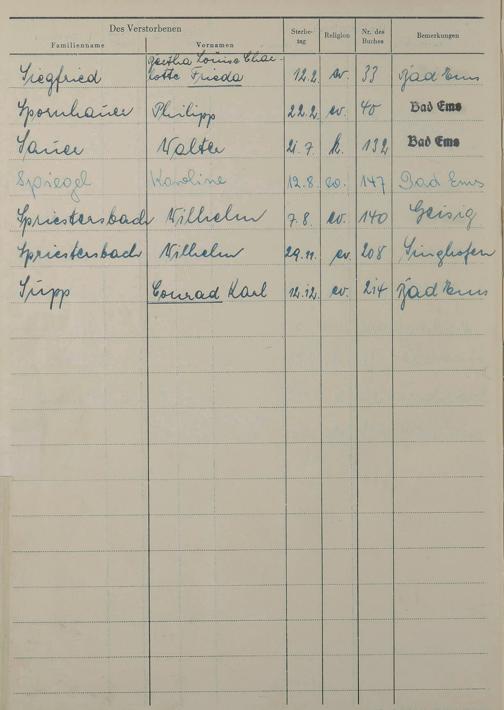 Des Verstorbenen
Familienname Vornamen Sterbe-tag Religion Nr. des Buches Bemerkungen
Louise Char-
Siegfried lotte Frieda 12.2. ev. 33 Bad Ems
Spornhauer Philipp 22.2. ev. 40 Bad Ems
Sauer Walter 21.7. k. 132 Bad Ems
Spiegel Karoline 19.8. ev. 147 Bad Ems
Spriestersbach Wilhelm 7.8. ev. 140 Geisig
Spriestersbach Wilhelm 29.11. ev. 208 Singhofen
Supp Conrad Karl 12.12. ev. 214 Bad Ems